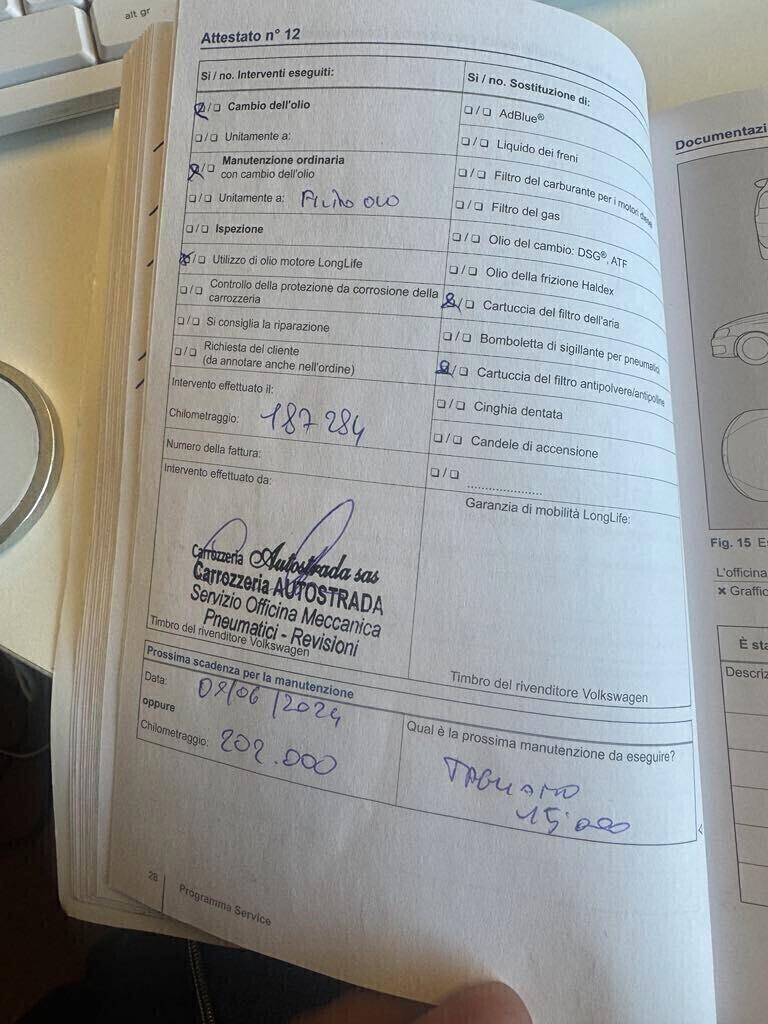 alt gr
Attestato n° 12
Si / no. Interventi eseguiti:
❏/❏ Cambio dell'olio
❏/❏ Unitamente a:
❏/❏ Manutenzione ordinaria
con cambio dell'olio
❏/❏ Unitamente a: Filtro olio
❏/❏ Ispezione
❏/❏ Utilizzo di olio motore LongLife
❏/❏ Controllo della protezione da corrosione della
carrozzeria
❏/❏ Si consiglia la riparazione
❏/❏ Richiesta del cliente
(da annotare anche nell'ordine)
Intervento effettuato il:
Chilometraggio: 187284
Numero della fattura:
Intervento effettuato da:
Carrozzeria Autostrada sas
Carrozzeria AUTOSTRADA
Servizio Officina Meccanica
Pneumatici - Revisioni
Timbro del rivenditore Volkswagen
Si / no. Sostituzione di:
❏/❏ AdBlue®
❏/❏ Liquido dei freni
❏/❏ Filtro del carburante per i motori diesel
❏/❏ Filtro del gas
❏/❏ Olio del cambio: DSG®, ATF
❏/❏ Olio della frizione Haldex
❏/❏ Cartuccia del filtro dell'aria
❏/❏ Bomboletta di sigillante per pneumatici
❏/❏ Cartuccia del filtro antipolvere/antipolline
❏/❏ Cinghia dentata
❏/❏ Candele di accensione
❏/❏ ....................
Garanzia di mobilità LongLife:
Timbro del rivenditore Volkswagen
Prossima scadenza per la manutenzione
Data: /06/2024
oppure
Chilometraggio: 202.000
Qual è la prossima manutenzione da eseguire?
TAGLIANDO
15.000
28
Programma Service
Documentazi
Fig. 15 Es
L'officina
× Graffic
È sta
Descriz